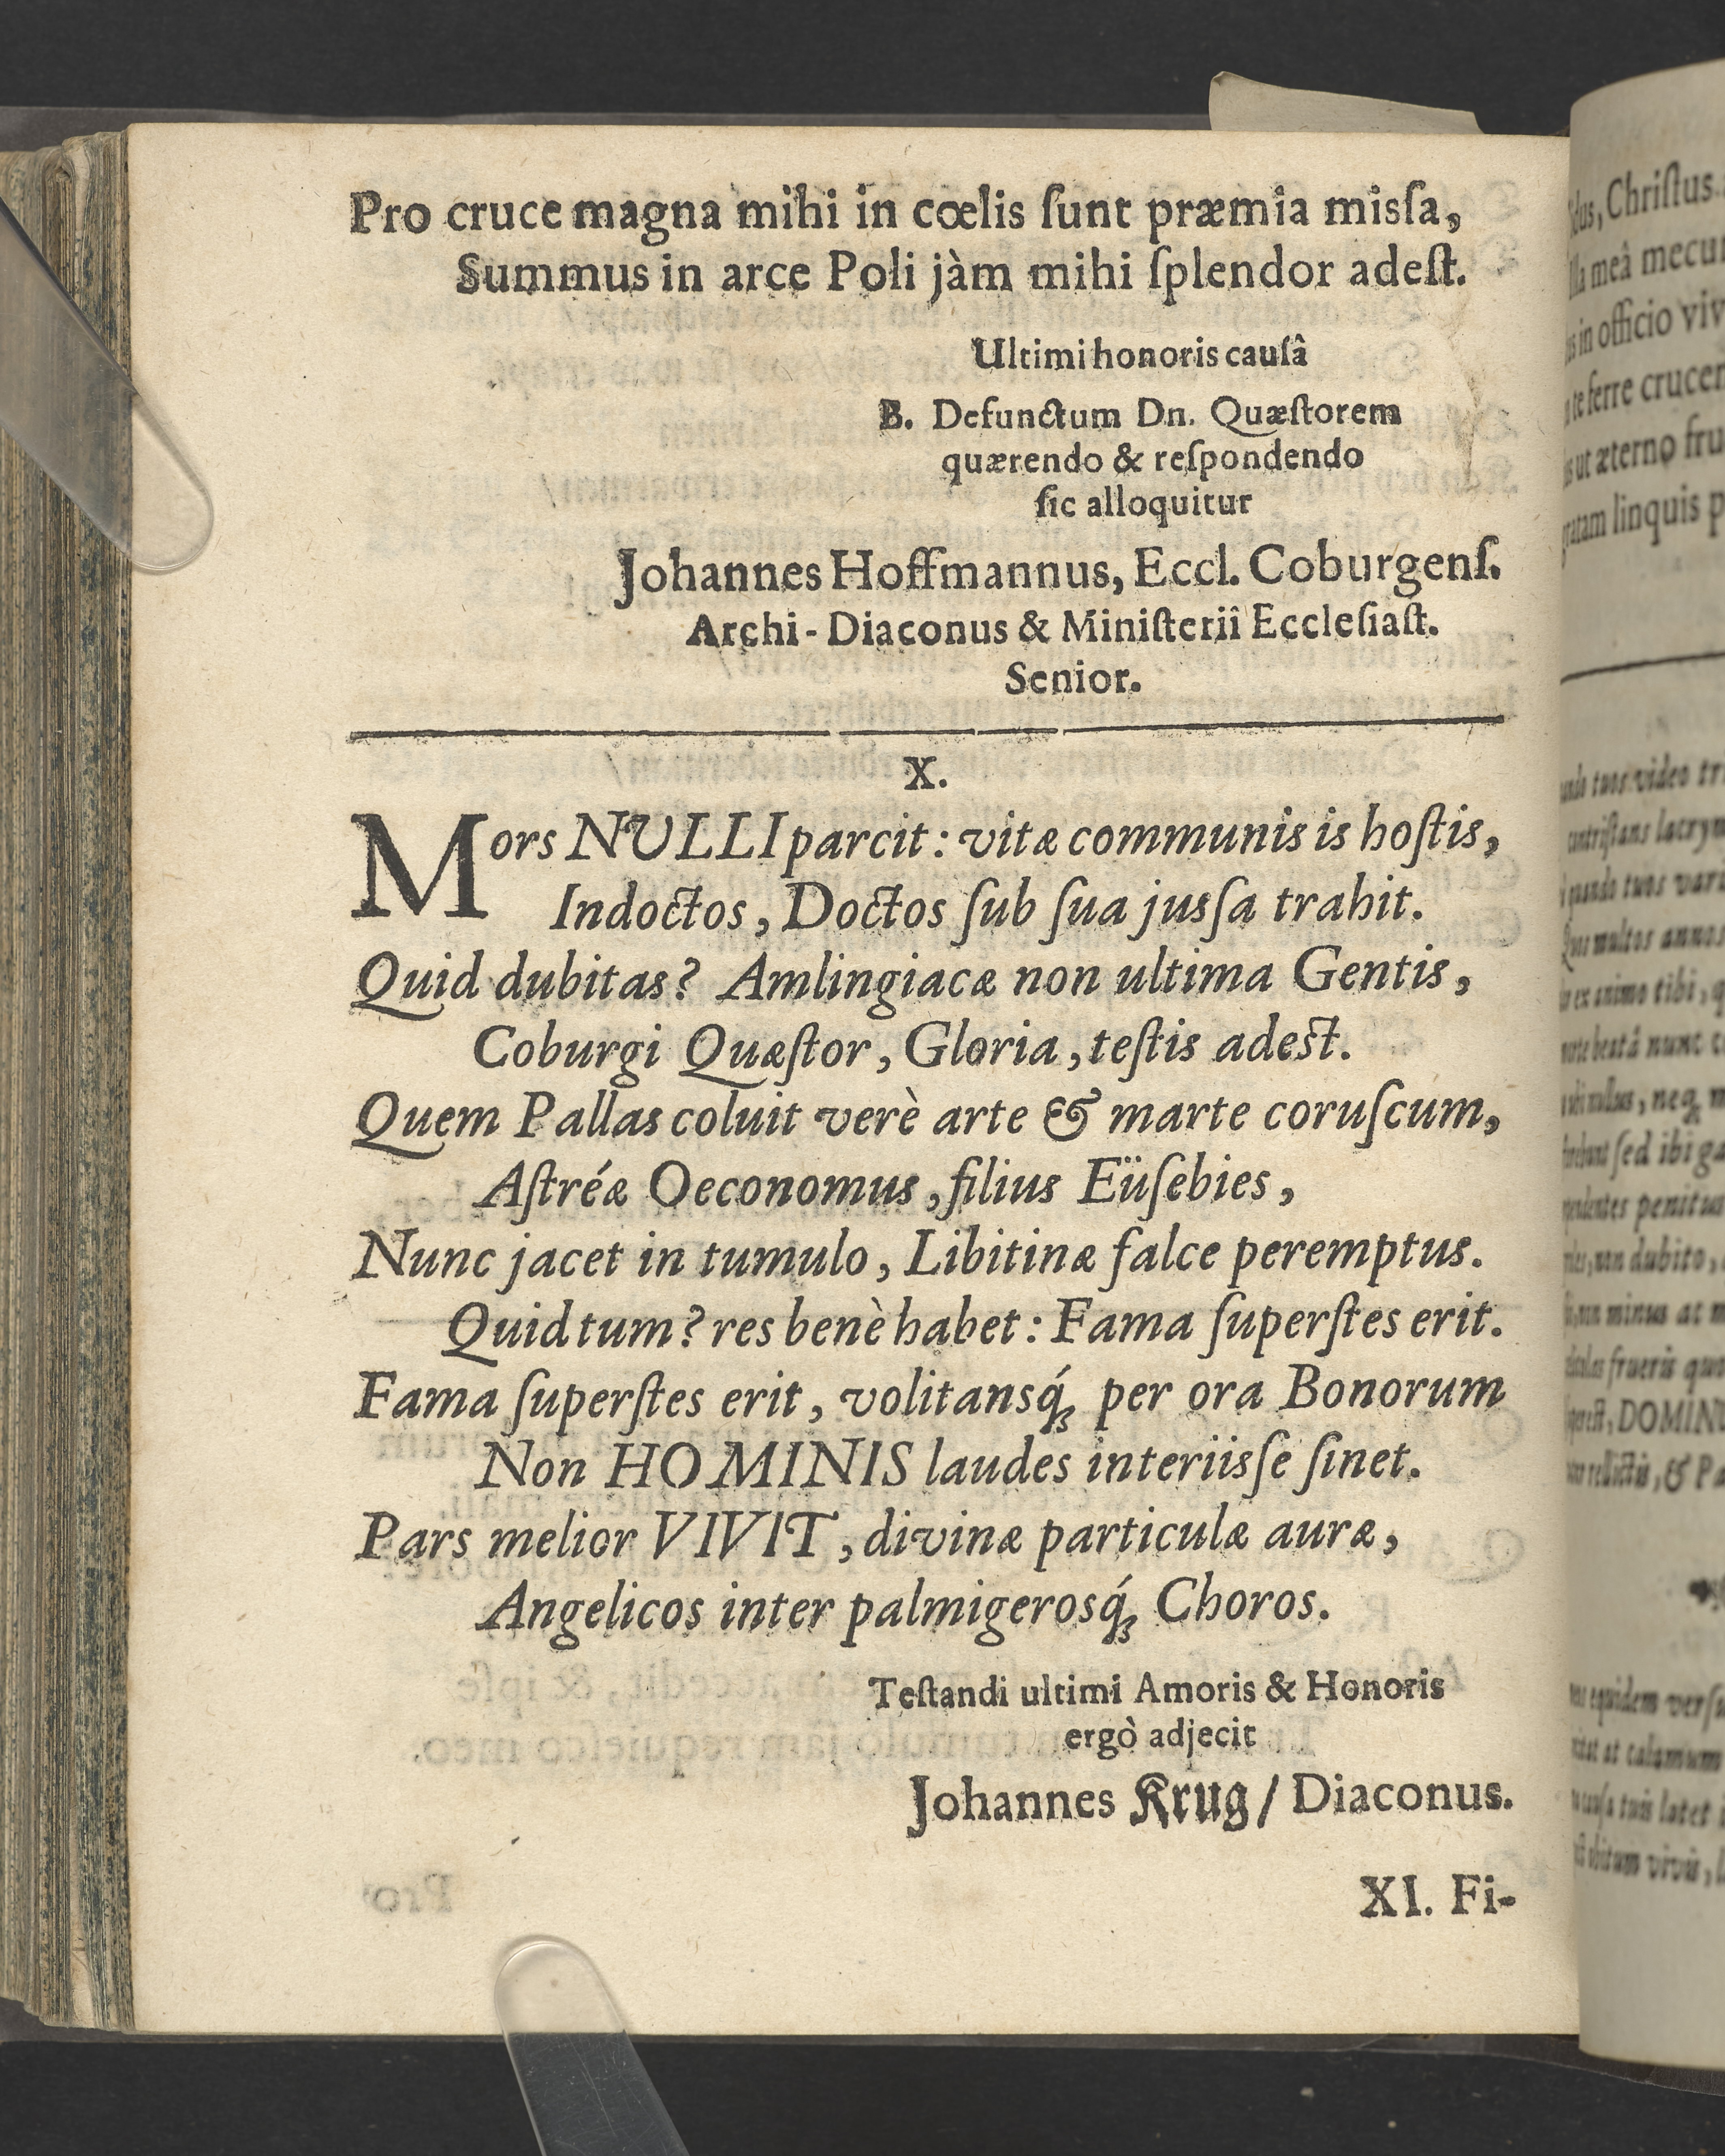 Pro cruce magna mihi in cœlis ſunt præmia misſa,
Summus in arce Poli jàm mihi ſplendor adeſt.
Ultimi honoris cauſâ
B. Defunctum Dn. Quæſtorem
quærendo & reſpondendo
ſic alloquitur
Johannes Hoffmannus, Eccl. Coburgenſ.
Archi-Diaconus & Miniſterii Eccleſiaſt.
Senior.
X.
Mors NULLI parcit: vitæ communis is hoſtis,
Indoctos, Doctos ſub ſua jusſa trahit.
Quid dubitas? Amlingiacæ non ultima Gentis,
Coburgi Quæſtor, Gloria, teſtis adest.
Quem Pallas coluit verè arte & marte coruſcum,
Aſtréæ Oeconomus, filius Eüſebies,
Nunc jacet in tumulo, Libitinæ falce peremptus.
Quid tum? res benè habet: Fama ſuperſtes erit.
Fama ſuperſtes erit, volitansq́ꝫ per ora Bonorum
Non HOMINIS laudes interiisſe ſinet.
Pars melior VIVIT, divinæ particulæ auræ,
Angelicos inter palmigerosq́ꝫ Choros.
Teſtandi ultimi Amoris & Honoris
ergò adjecit
Johannes Krug / Diaconus.
XI. Fi-
Chriſtus
meâ mecum
in officio
te ferre crucem
ut æterno
linquis
tuos video
quando tuos
multos annos
ex animo tibi,
nunc
ſed ibi
penitus
non dubito,
minus at
frueris
DOMIN
equidem
at calamum
tuis latet
vivis,